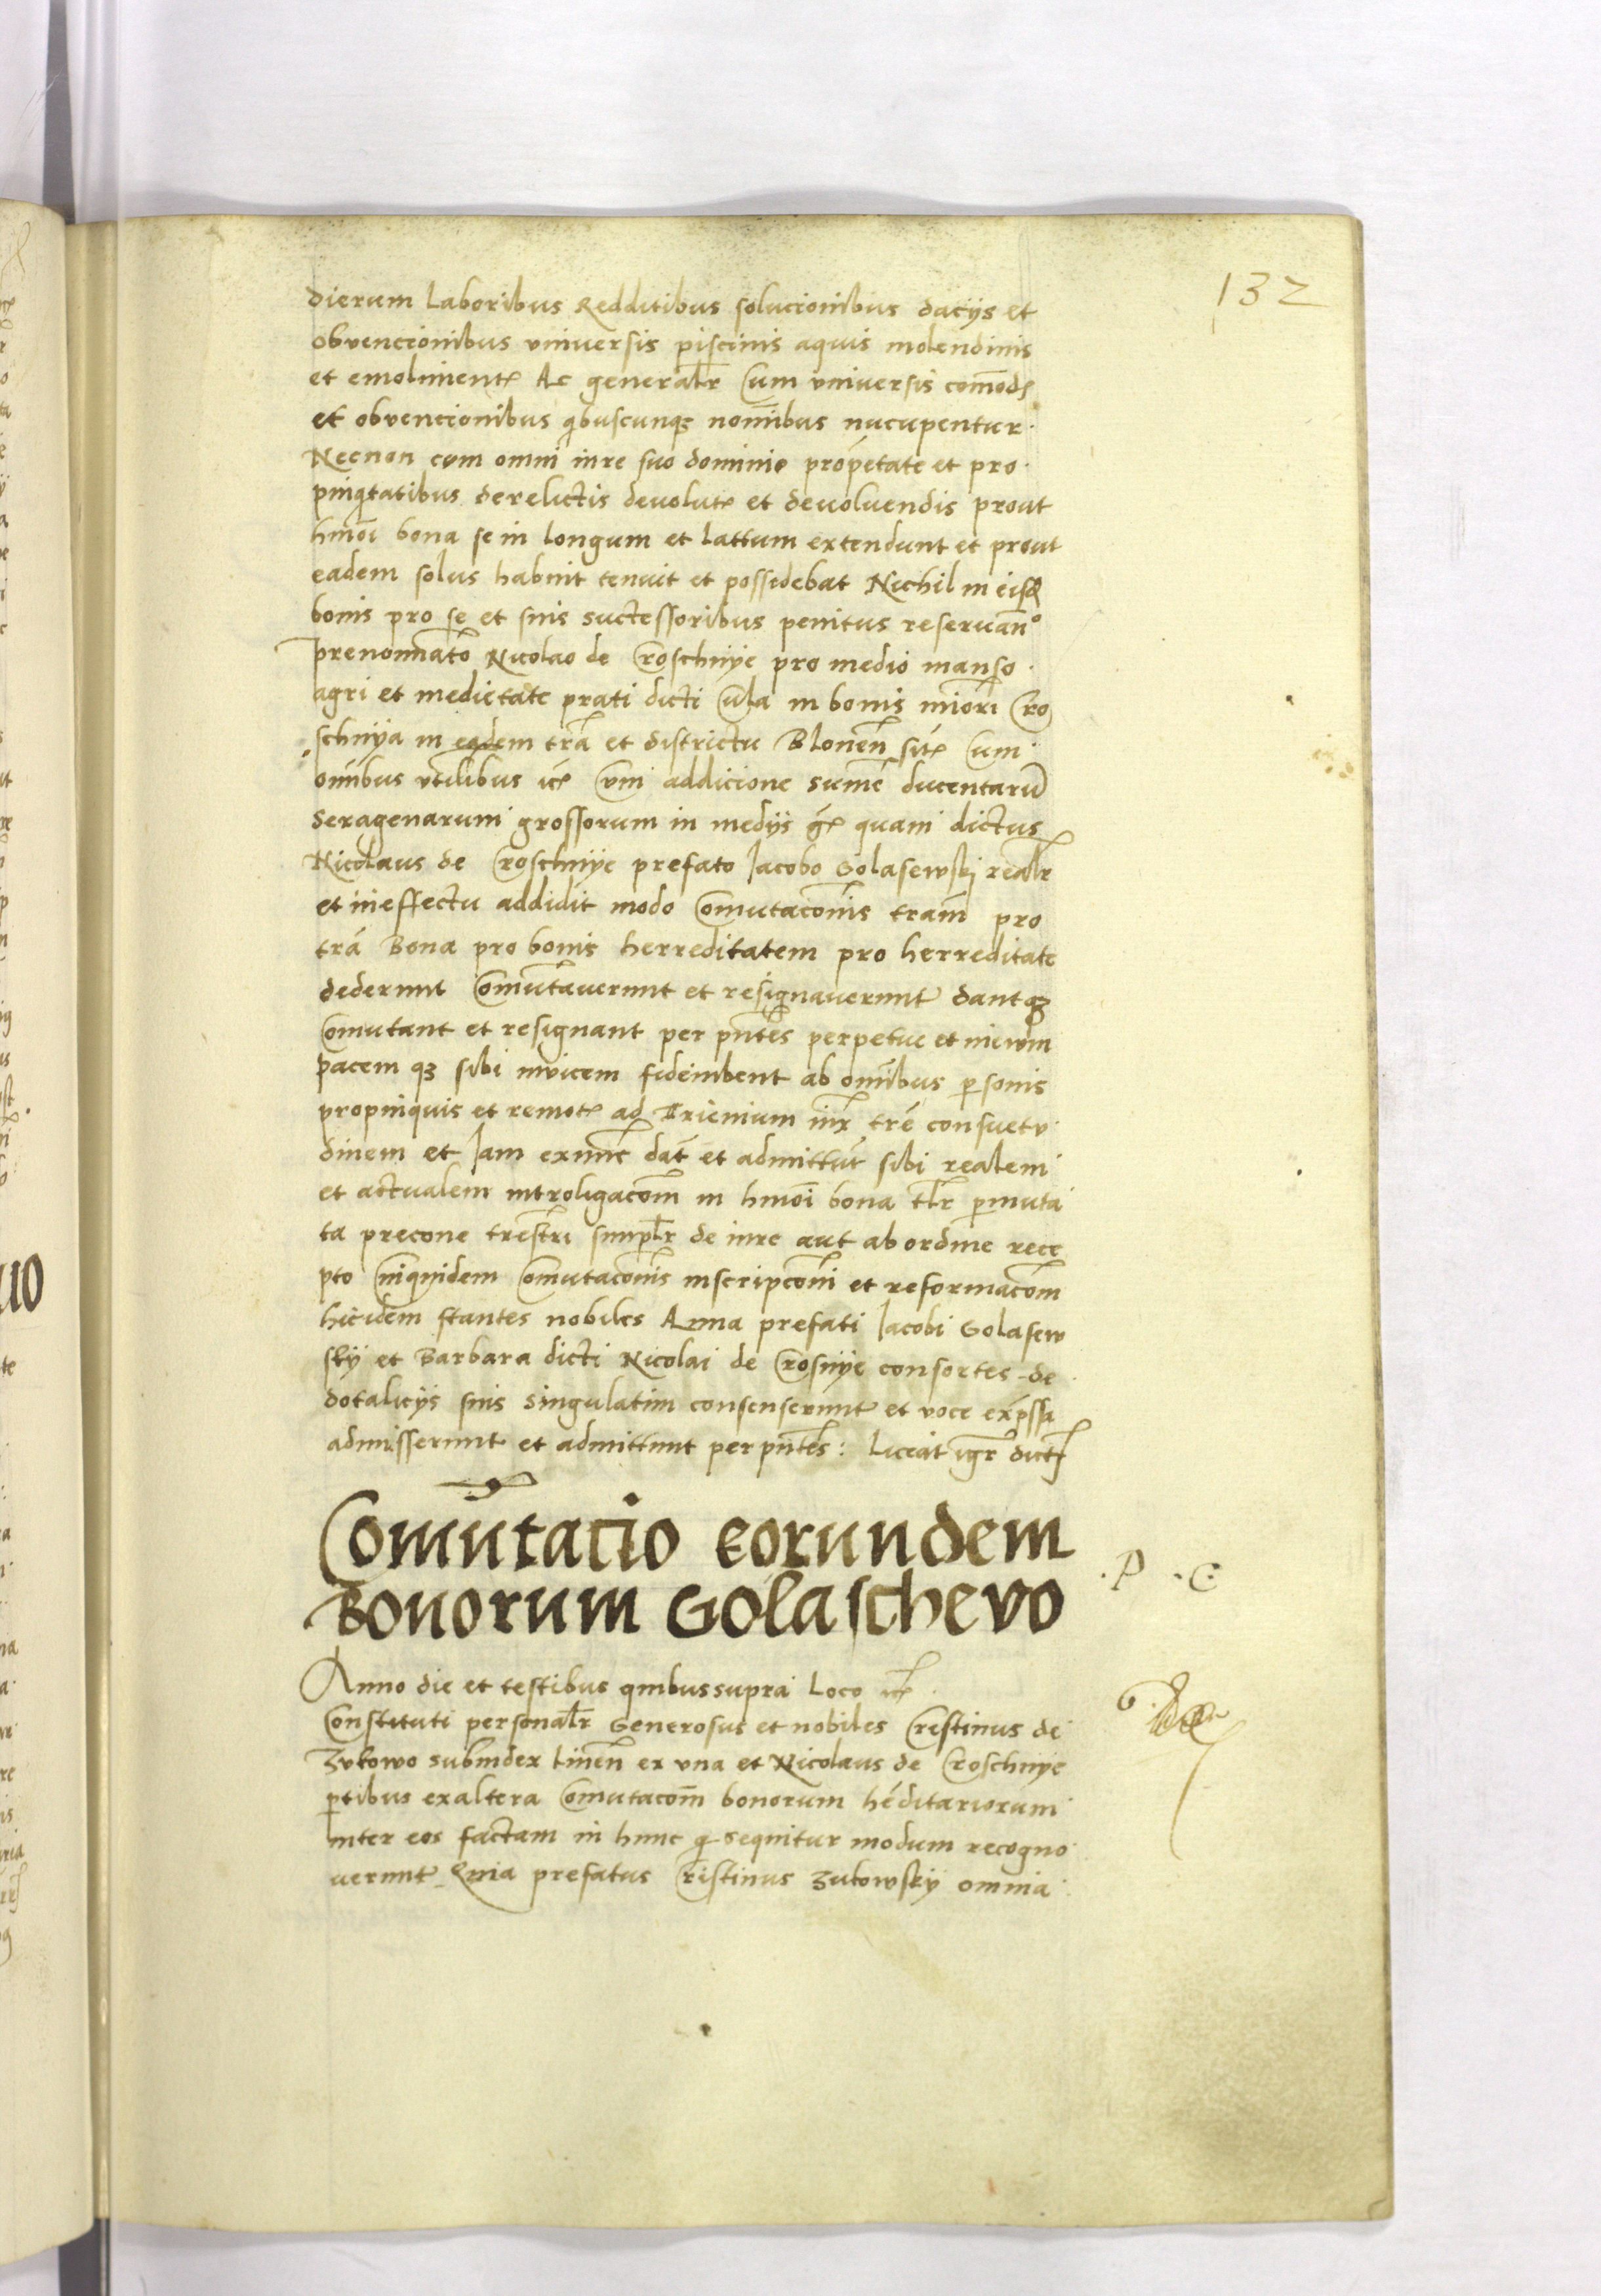 132
dierum laboribus Redditibus solucionibus dacijs et
obvencionibus vniversis piscinis aquis molendinis
et emolument Ac generalr Cum vniversis comod
et obvencionibus qbuscunqz nomibus nucupentur
Necnon cum omni iure suo dominio propetate et pro
pinqtatibus derelictis devolut et devoluendis prout
hmoi bona se in longum et lattum extendunt et prout
eadem solus habuit tenuit et possidebat Nichil in eisd
bonis pro se et suis suctessoribus penitus reseruano
prenominato Nicolao de Croschnye pro medio manso
agri et medietate prati dicti in bonis miori Cro
schnya in eadem tra et districtu Blonen sit Cum
omibus vtilibus ic Cum addicione summe ducentaru
sexagenarum grossorum in medijs g quam dictus
Nicolaus de Croschnye prefato Jacobo Golasewski realr
et in effectu addidit modo Comutaconis tram pro
tra Bona pro bonis herreditatem pro herreditate
dederunt Comutauerunt et resignauerunt dantqz
Comutant et resignant per pntes perpetue et inewm
pacem qz sibi invicem fideiubent ab omibus psonis
propinquis et remot ad Trienium iux tre consuetu
dinem et Jam exnunc dat et admittut sibi realem
et actualem intro ligacom in hmoi bona tlr pmuta
ta precone trestri simplr de iure aut ab ordine rece
pto Cuiquidem Comutaconis inscripconi et reformacom
hicidem stantes nobiles Anna prefati Jacobi Golasew
skij et Barbara dicti Nicolai de Crosnye consortes de
dotalicijs suis singulatim consenserunt et voce expssa
admisserunt et admittunt per pntes: liceat igr dict
Comutacio eorundem
Bonorum Golaschevo
.P .C
Anno die et testibus quibus supra Loco ic
Constituti personalr Generosus et nobiles Cristinus de
Zukowo subiudex Liuen ex vna et Nicolaus de Croschnye
ptibus ex altera Comutacom bonorum heditariorum
inter eos factam in hunc q sequitur modum recogno
uerunt Quia prefatus Cristinus Zukowskij omnia